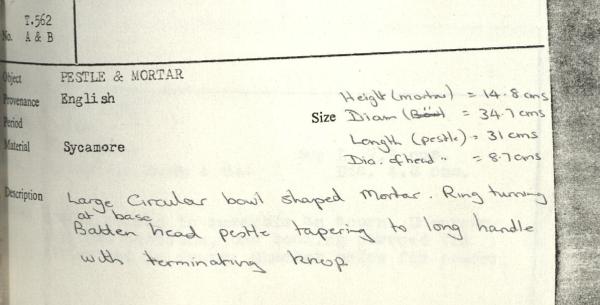 T.562
No. A & B
Object PESTLE & MORTAR
Provenance English
Height (mortar) = 14.8 cms
Period
Size Diam (Bowl) = 34.7 cms
Length (pestle) = 31 cms
Material Sycamore
Dia. of head " = 8.7 cms
Description Large Circular bowl shaped Mortar. Ring turning
at base
Batten head pestle tapering to long handle
with terminating knop.